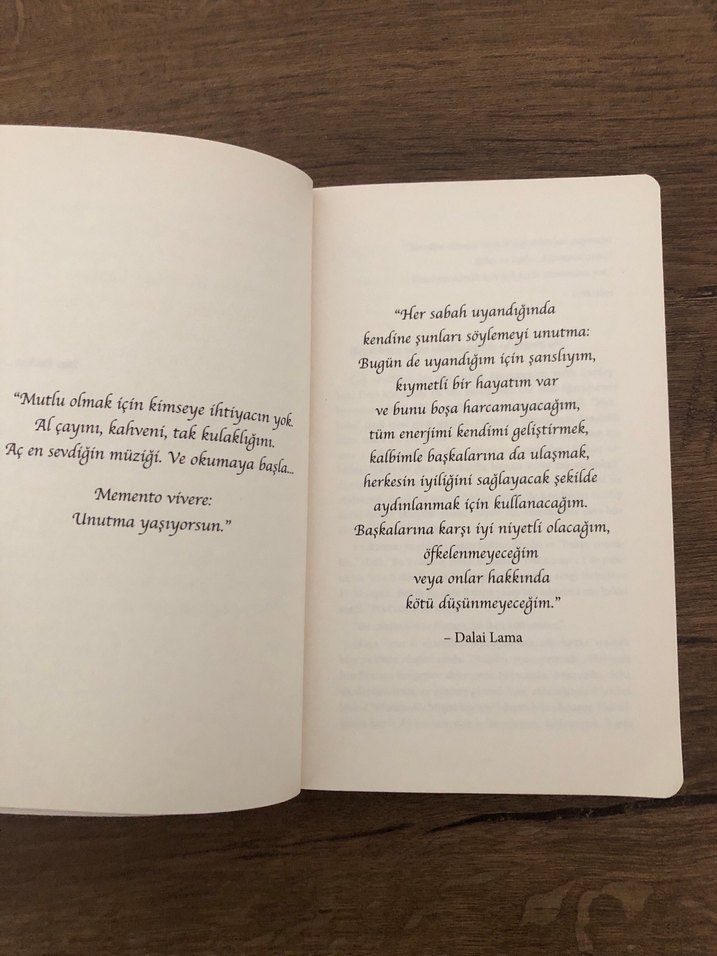 “Mutlu olmak için kimseye ihtiyacın yok.
Al çayını, kahveni, tak kulaklığını.
Aç en sevdiğin müziği. Ve okumaya başla...
Memento vivere:
Unutma yaşıyorsun.”
“Her sabah uyandığında
kendine şunları söylemeyi unutma:
Bugün de uyandığım için şanslıyım,
kıymetli bir hayatım var
ve bunu boşa harcamayacağım,
tüm enerjimi kendimi geliştirmek,
kalbimle başkalarına da ulaşmak,
herkesin iyiliğini sağlayacak şekilde
aydınlanmak için kullanacağım.
Başkalarına karşı iyi niyetli olacağım,
öfkelenmeyeceğim
veya onlar hakkında
kötü düşünmeyeceğim.”
– Dalai Lama